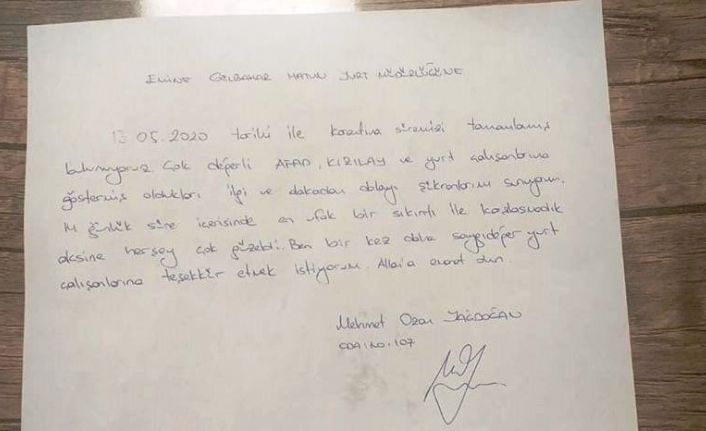 EMİNE GÜLBAHAR HATUN YURT MÜDÜRLÜĞÜNE
13.05.2020 tarihi ile karantina süremizi tamamlamış
bulunuyoruz. Çok değerli AFAD, KIZILAY ve yurt çalışanlarına
göstermiş oldukları ilgi ve alakadan dolayı şükranlarımı sunuyorum.
14 günlük süre içerisinde en ufak bir sıkıntı ile karşılaşmadık
aksine herşey çok güzeldi. Ben bir kez daha saygıdeğer yurt
çalışanlarına teşekkür etmek istiyorum. Allah'a emanet olun.
Mehmet Ozan
ODA NO: 107